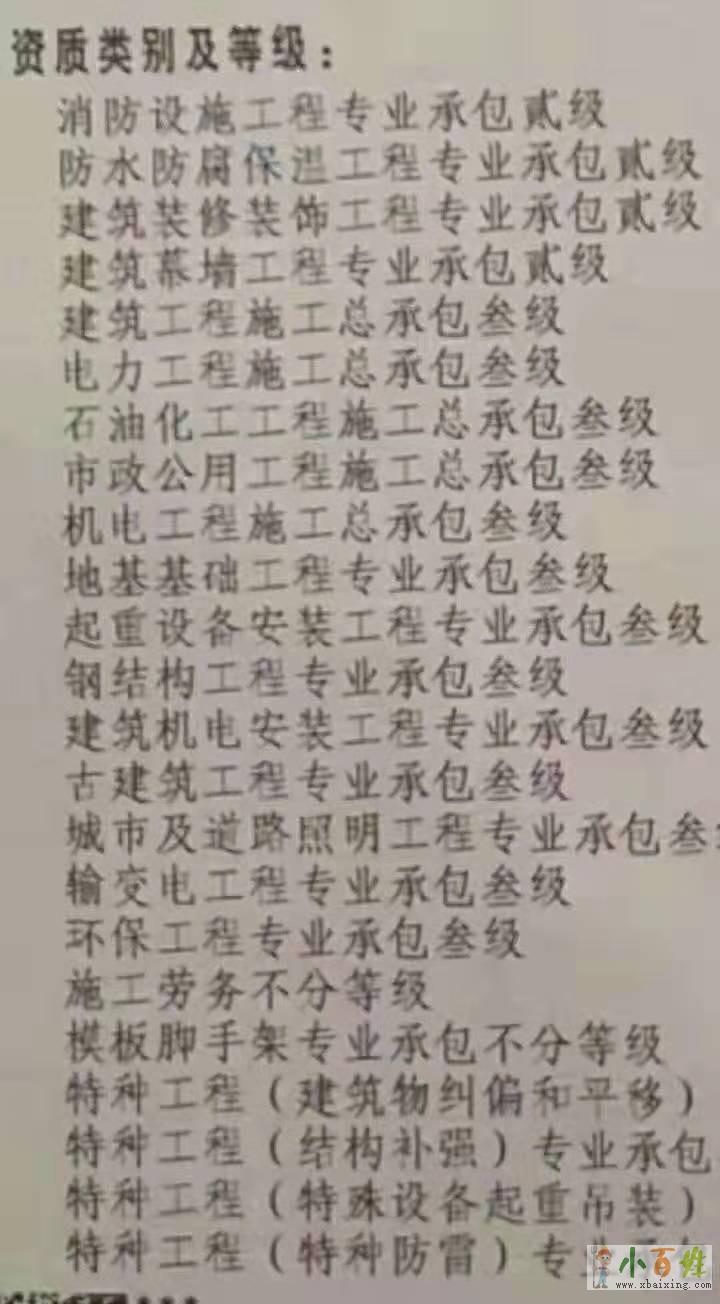 资质类别及等级：
消防设施工程专业承包贰级
防水防腐保温工程专业承包贰级
建筑装修装饰工程专业承包贰级
建筑幕墙工程专业承包贰级
建筑工程施工总承包叁级
电力工程施工总承包叁级
石油化工工程施工总承包叁级
市政公用工程施工总承包叁级
机电工程施工总承包叁级
地基基础工程专业承包叁级
起重设备安装工程专业承包叁级
钢结构工程专业承包叁级
建筑机电安装工程专业承包叁级
古建筑工程专业承包叁级
城市及道路照明工程专业承包叁
输变电工程专业承包叁级
环保工程专业承包叁级
施工劳务不分等级
模板脚手架专业承包不分等级
特种工程（建筑物纠偏和平移）
特种工程（结构补强）专业承包
特种工程（特殊设备起重吊装）
特种工程（特种防雷）专
小百姓
www.xbaixing.com